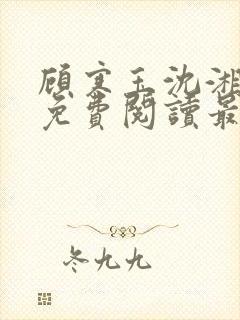 顾寒王沈湘
免費閱讀最
冬九九